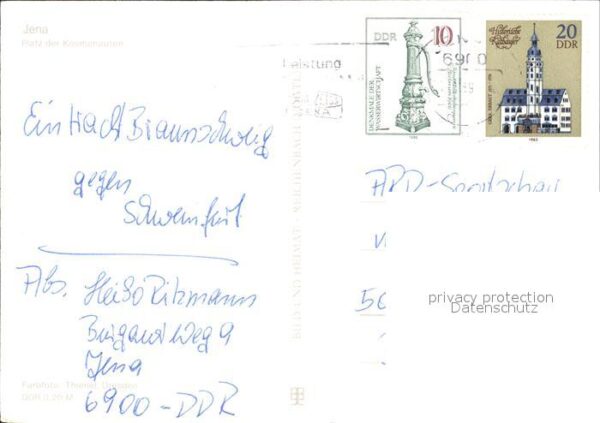 Jena
Platz der Kosmonauten
Eintracht Braunschweig
gegen
Schweinfurt
Abs. Heiko Ritzmann
Burgauer Weg 9
Jena
6900-DDR
Farbfoto: Thieme, Dresden
DDR 0,20 M
BILD UND HEIMAT REICHENBACH
Leistung
DDR 10
DENKMALE DER
WASSERWIRTSCHAFT
Historische
Rathäuser
20
DDR
6900
ARD-Sportschau
50
privacy protection
Datenschutz